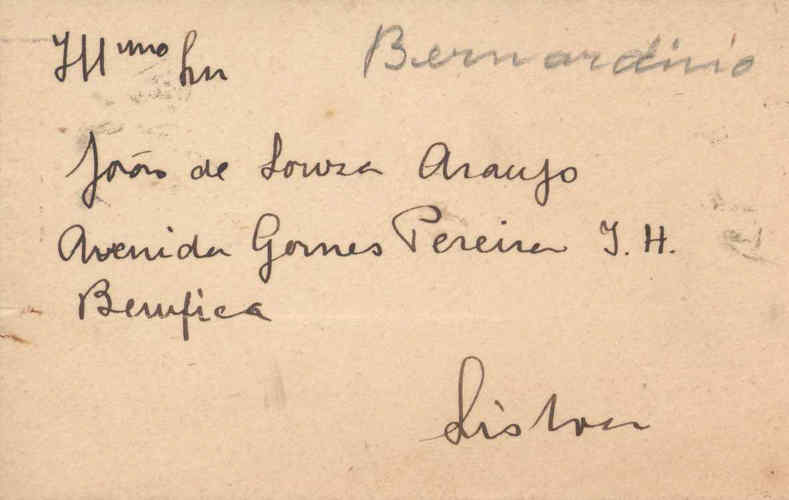 Illmo Snr
Bernardinio
João de Souza Araujo
Avenida Gomes Pereira J. H.
Bemfica
Lisboa